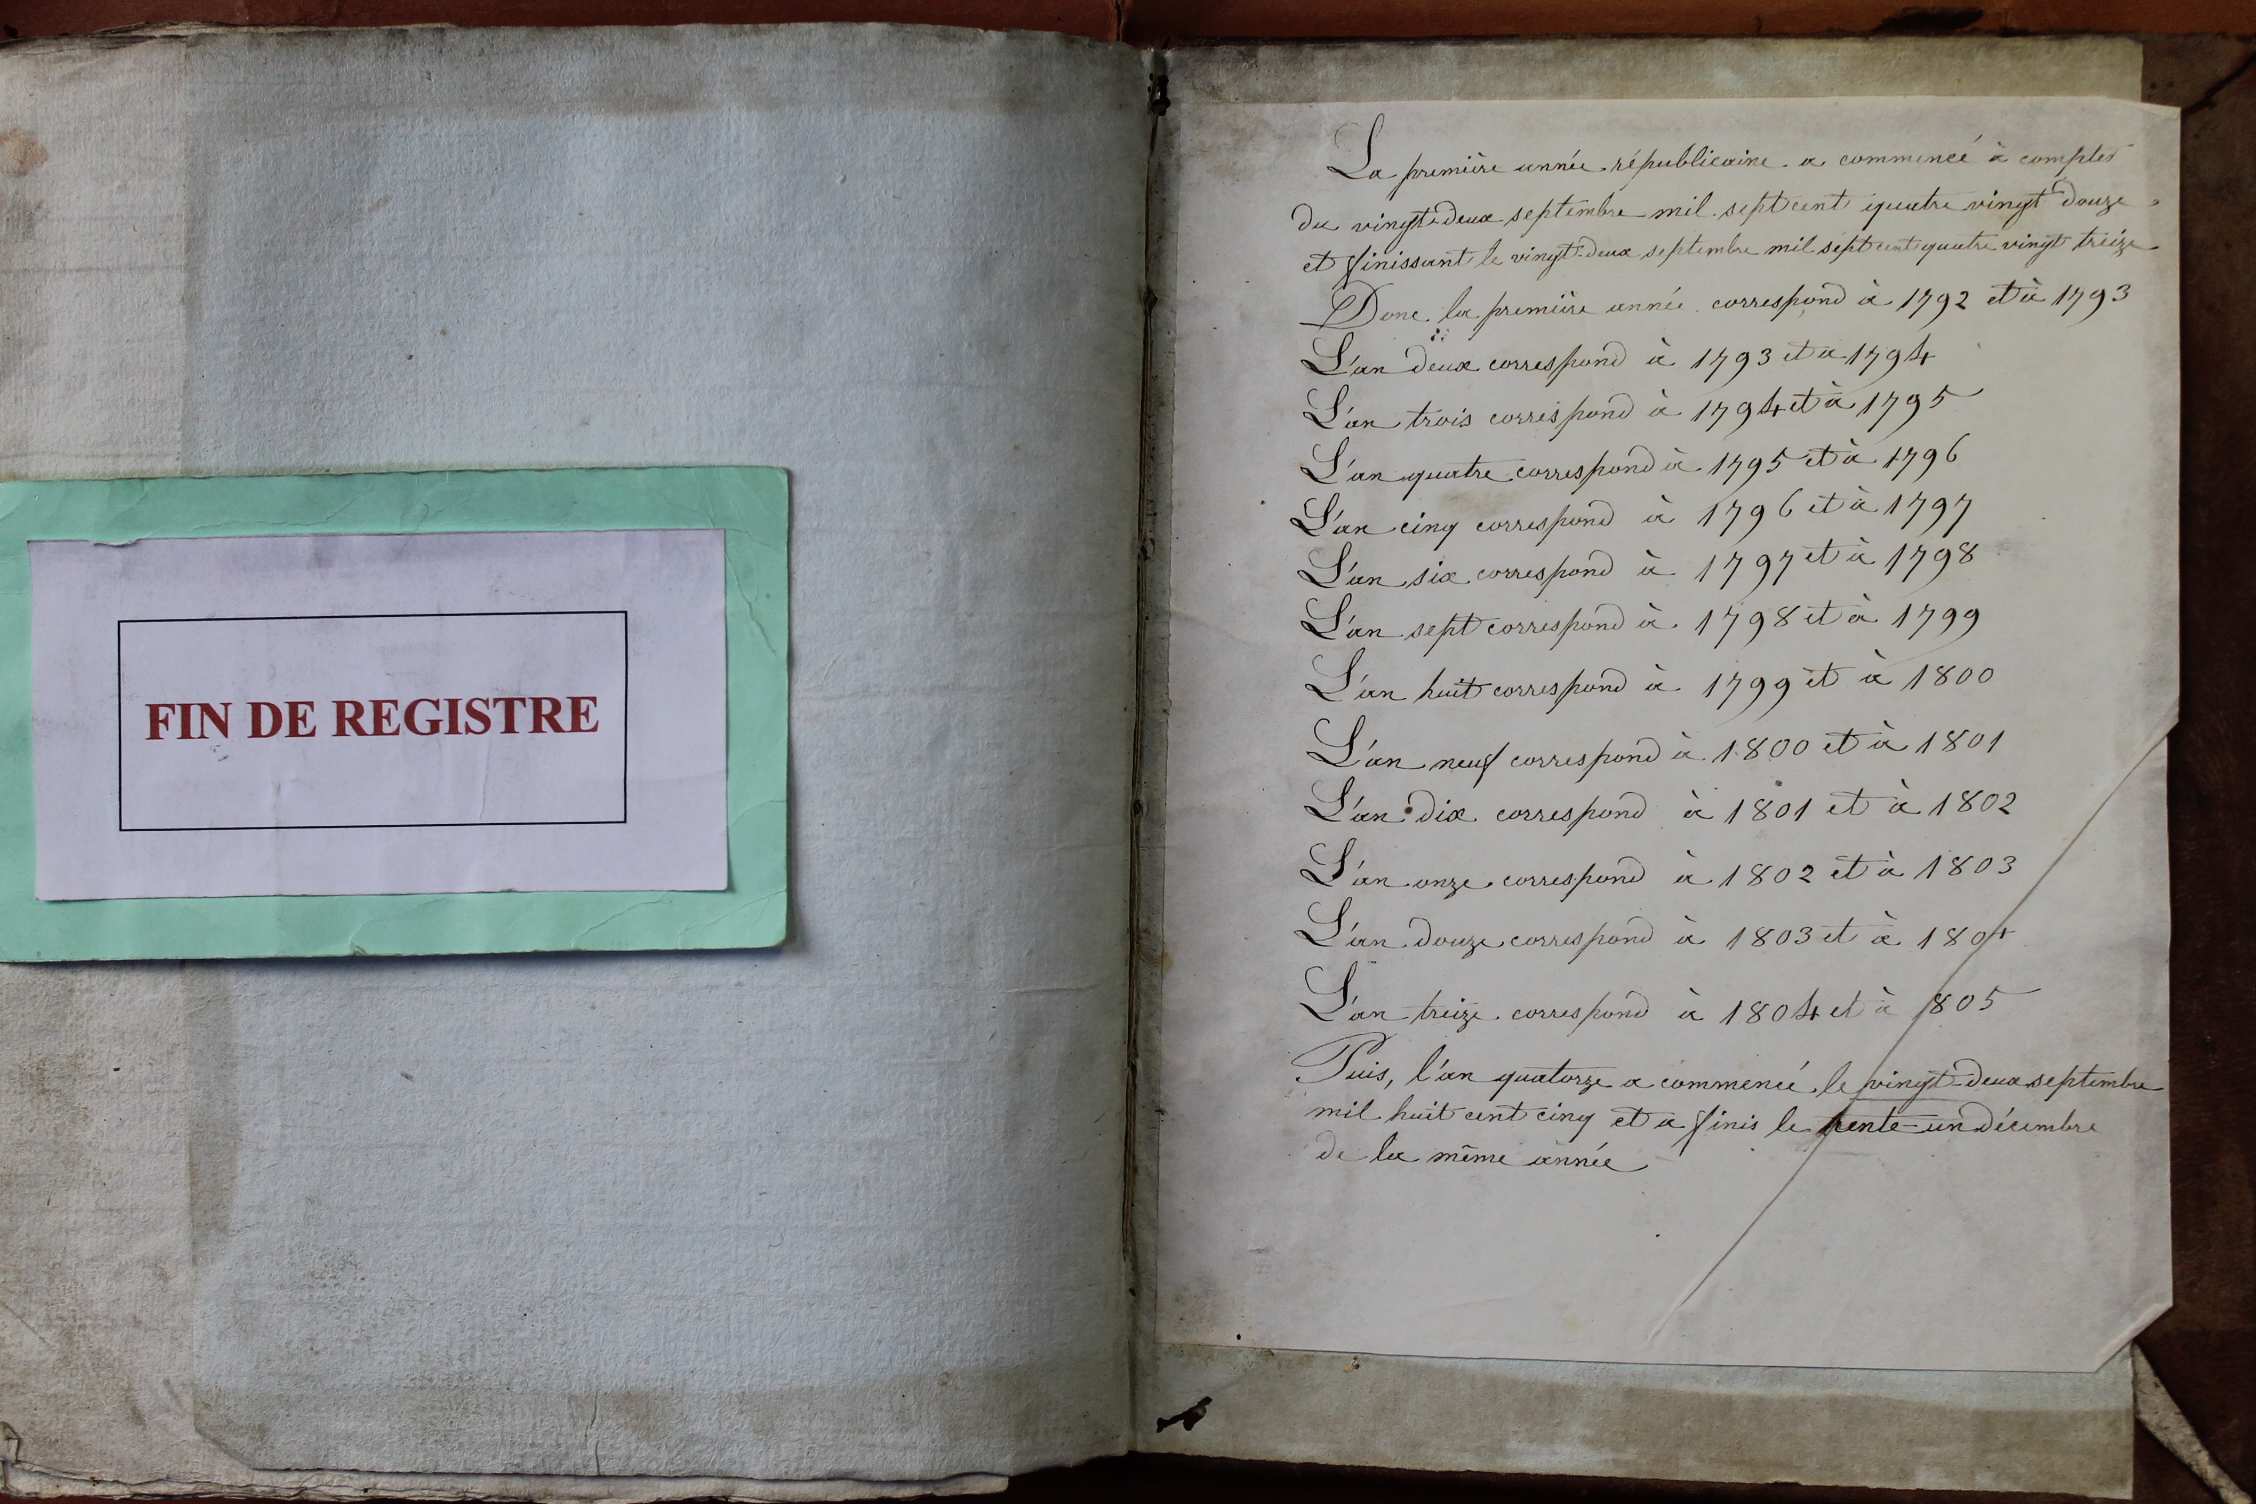 FIN DE REGISTRE
La première année républicaine a commencé à compter
du vingt-deux septembre mil sept cent quatre vingt douze
et finissant le vingt-deux septembre mil sept cent quatre vingt treize
Donc la première année correspond à 1792 et à 1793
L'an deux correspond à 1793 et à 1794
L'an trois correspond à 1794 et à 1795
L'an quatre correspond à 1795 et à 1796
L'an cinq correspond à 1796 et à 1797
L'an six correspond à 1797 et à 1798
L'an sept correspond à 1798 et à 1799
L'an huit correspond à 1799 et à 1800
L'an neuf correspond à 1800 et à 1801
L'an dix correspond à 1801 et à 1802
L'an onze correspond à 1802 et à 1803
L'an douze correspond à 1803 et à 1804
L'an treize correspond à 1804 et à 1805
Puis, l'an quatorze a commencé le vingt-deux septembre
mil huit cent cinq et a finis le trente-un décembre
de la même année